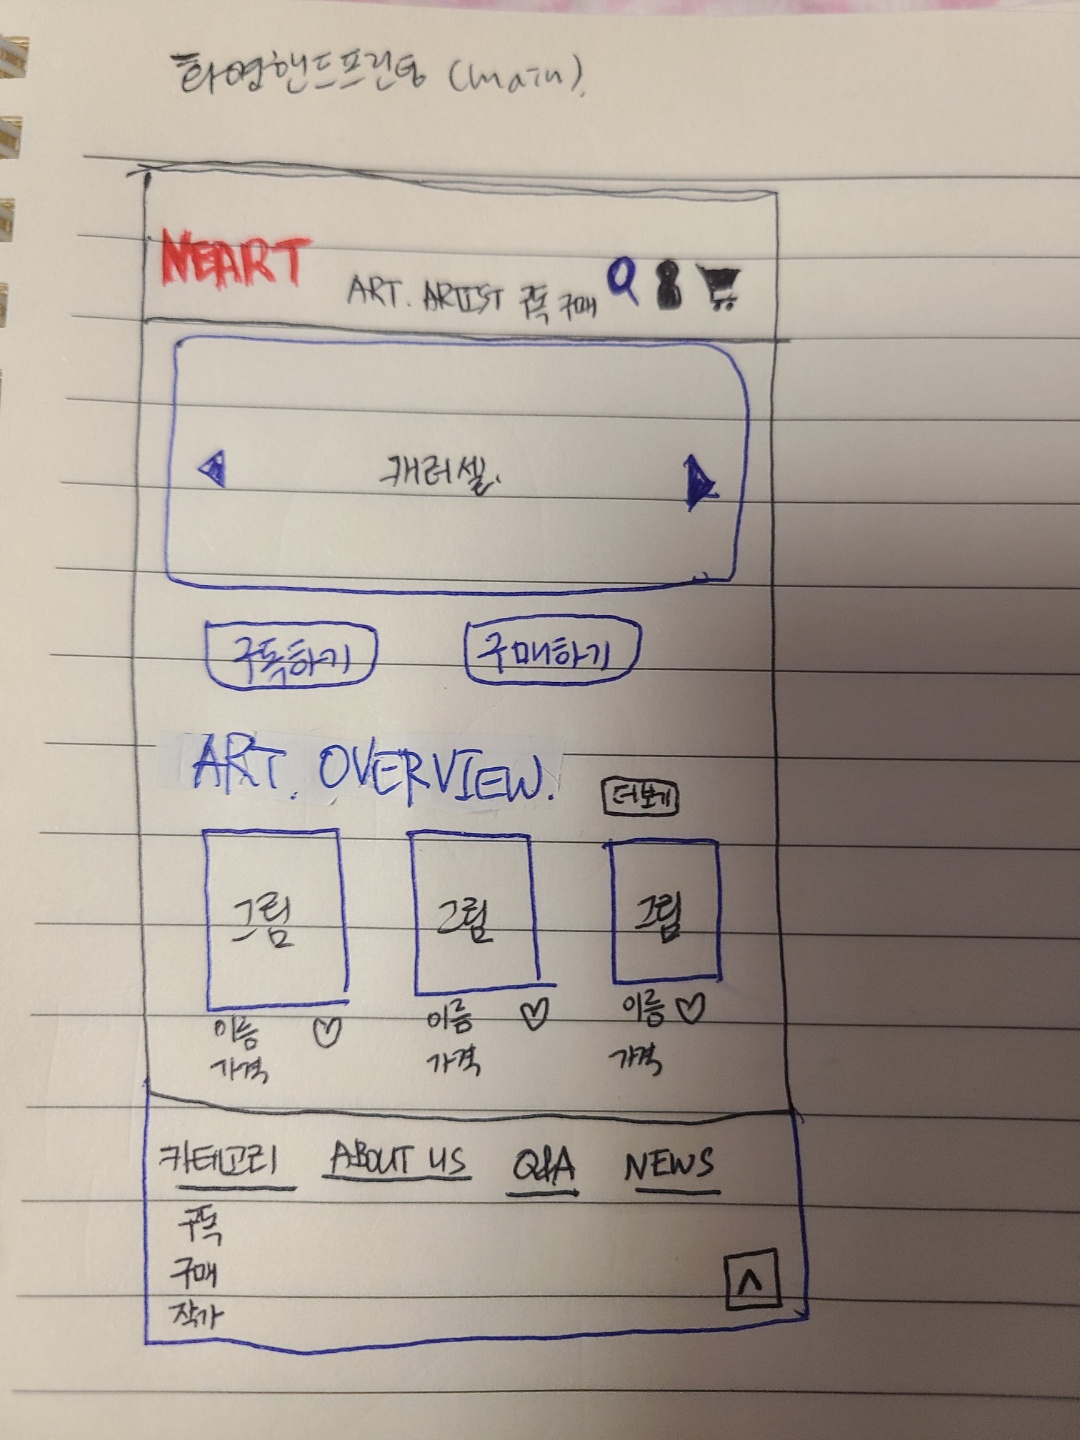 화영핸드프린팅 (main).
NEART
ART. ARTIST 구독 구매
캐러셀.
구독하기 구매하기
ART. OVERVIEW.
더보기
그림 그림 그림
이름 이름 이름
가격 가격 가격
카테고리 ABOUT US Q&A NEWS
구독
구매
작가